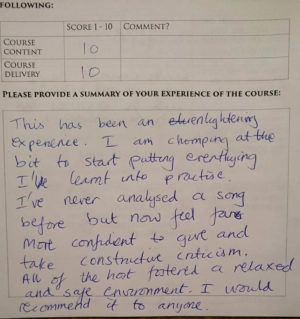 FOLLOWING:
SCORE 1 - 10 COMMENT?
COURSE
CONTENT 10
COURSE
DELIVERY 10
PLEASE PROVIDE A SUMMARY OF YOUR EXPERIENCE OF THE COURSE:
This has been an enlightening
experience. I am chomping at the
bit to start putting everything
I've learnt into practise.
I've never analysed a song
before but now feel far
more confident to give and
take constructive criticism.
All of the host fostered a relaxed
and safe environment. I would
recommend it to anyone.